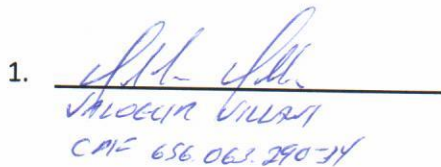 1.
VALDECIR VILLANI
CPF 656.063.290-34